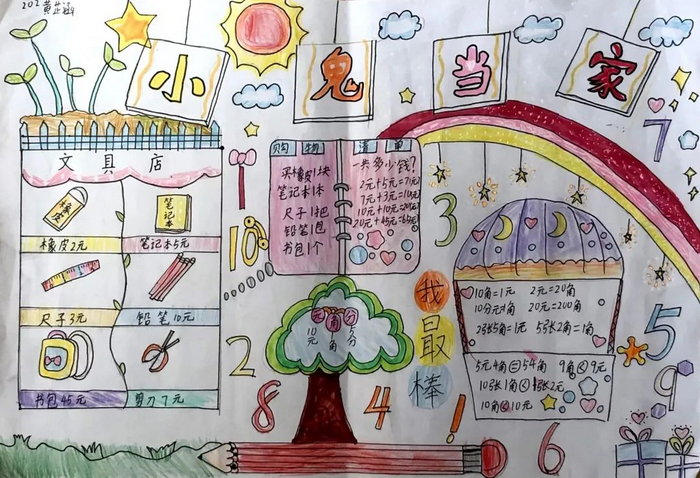 202 黄芷涵
小鬼当家
文具店
橡皮
笔记本
橡皮2元
笔记本5元
尺子3元
铅笔10元
书包45元
剪刀7元
购物清单
买橡皮1块
笔记本1本
尺子1把
铅笔1包
书包1个
一共多少钱?
2元+5元=7元
7元+3元=10元
10元+10元=20元
20元+45元=65元
元角分
10元
角
5分
我最棒
10角=1元 2元=20角
10分=1角 20元=200角
2张5角=1元 5张2角=1角
5元4角=54角 9角<9元
10张1角<1张2元
10角<10元
7
10
3
5
2
8
4
9
6